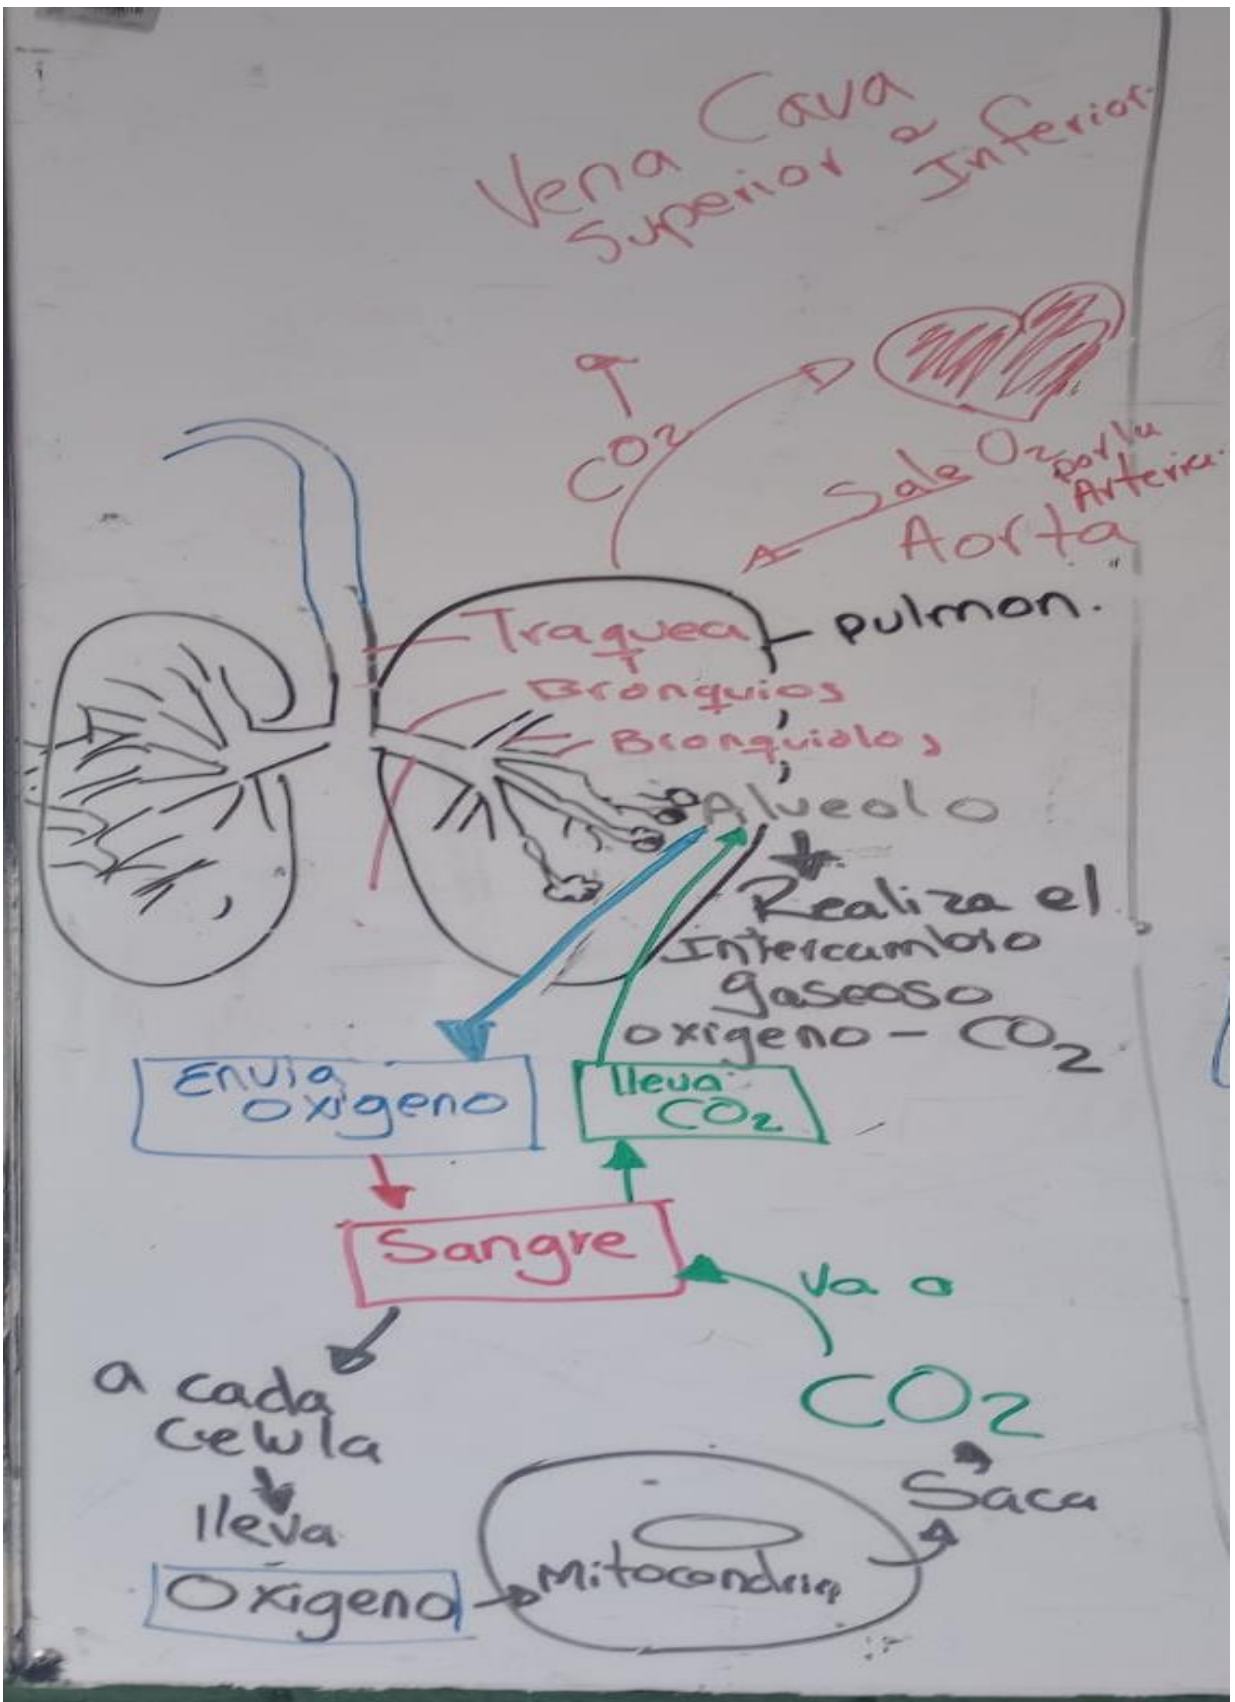 Vena Cava
Superior e Inferior.
CO2
Sale O2 por la
Arteria
Aorta
pulmon.
Traquea
Bronquios
Bronquiolos
Alveolo
Realiza el
Intercambio
gaseoso
oxigeno - CO2
Envia
oxigeno
lleva
CO2
Sangre
Va a
CO2
a cada
Celula
lleva
Saca
Oxigeno
Mitocondria